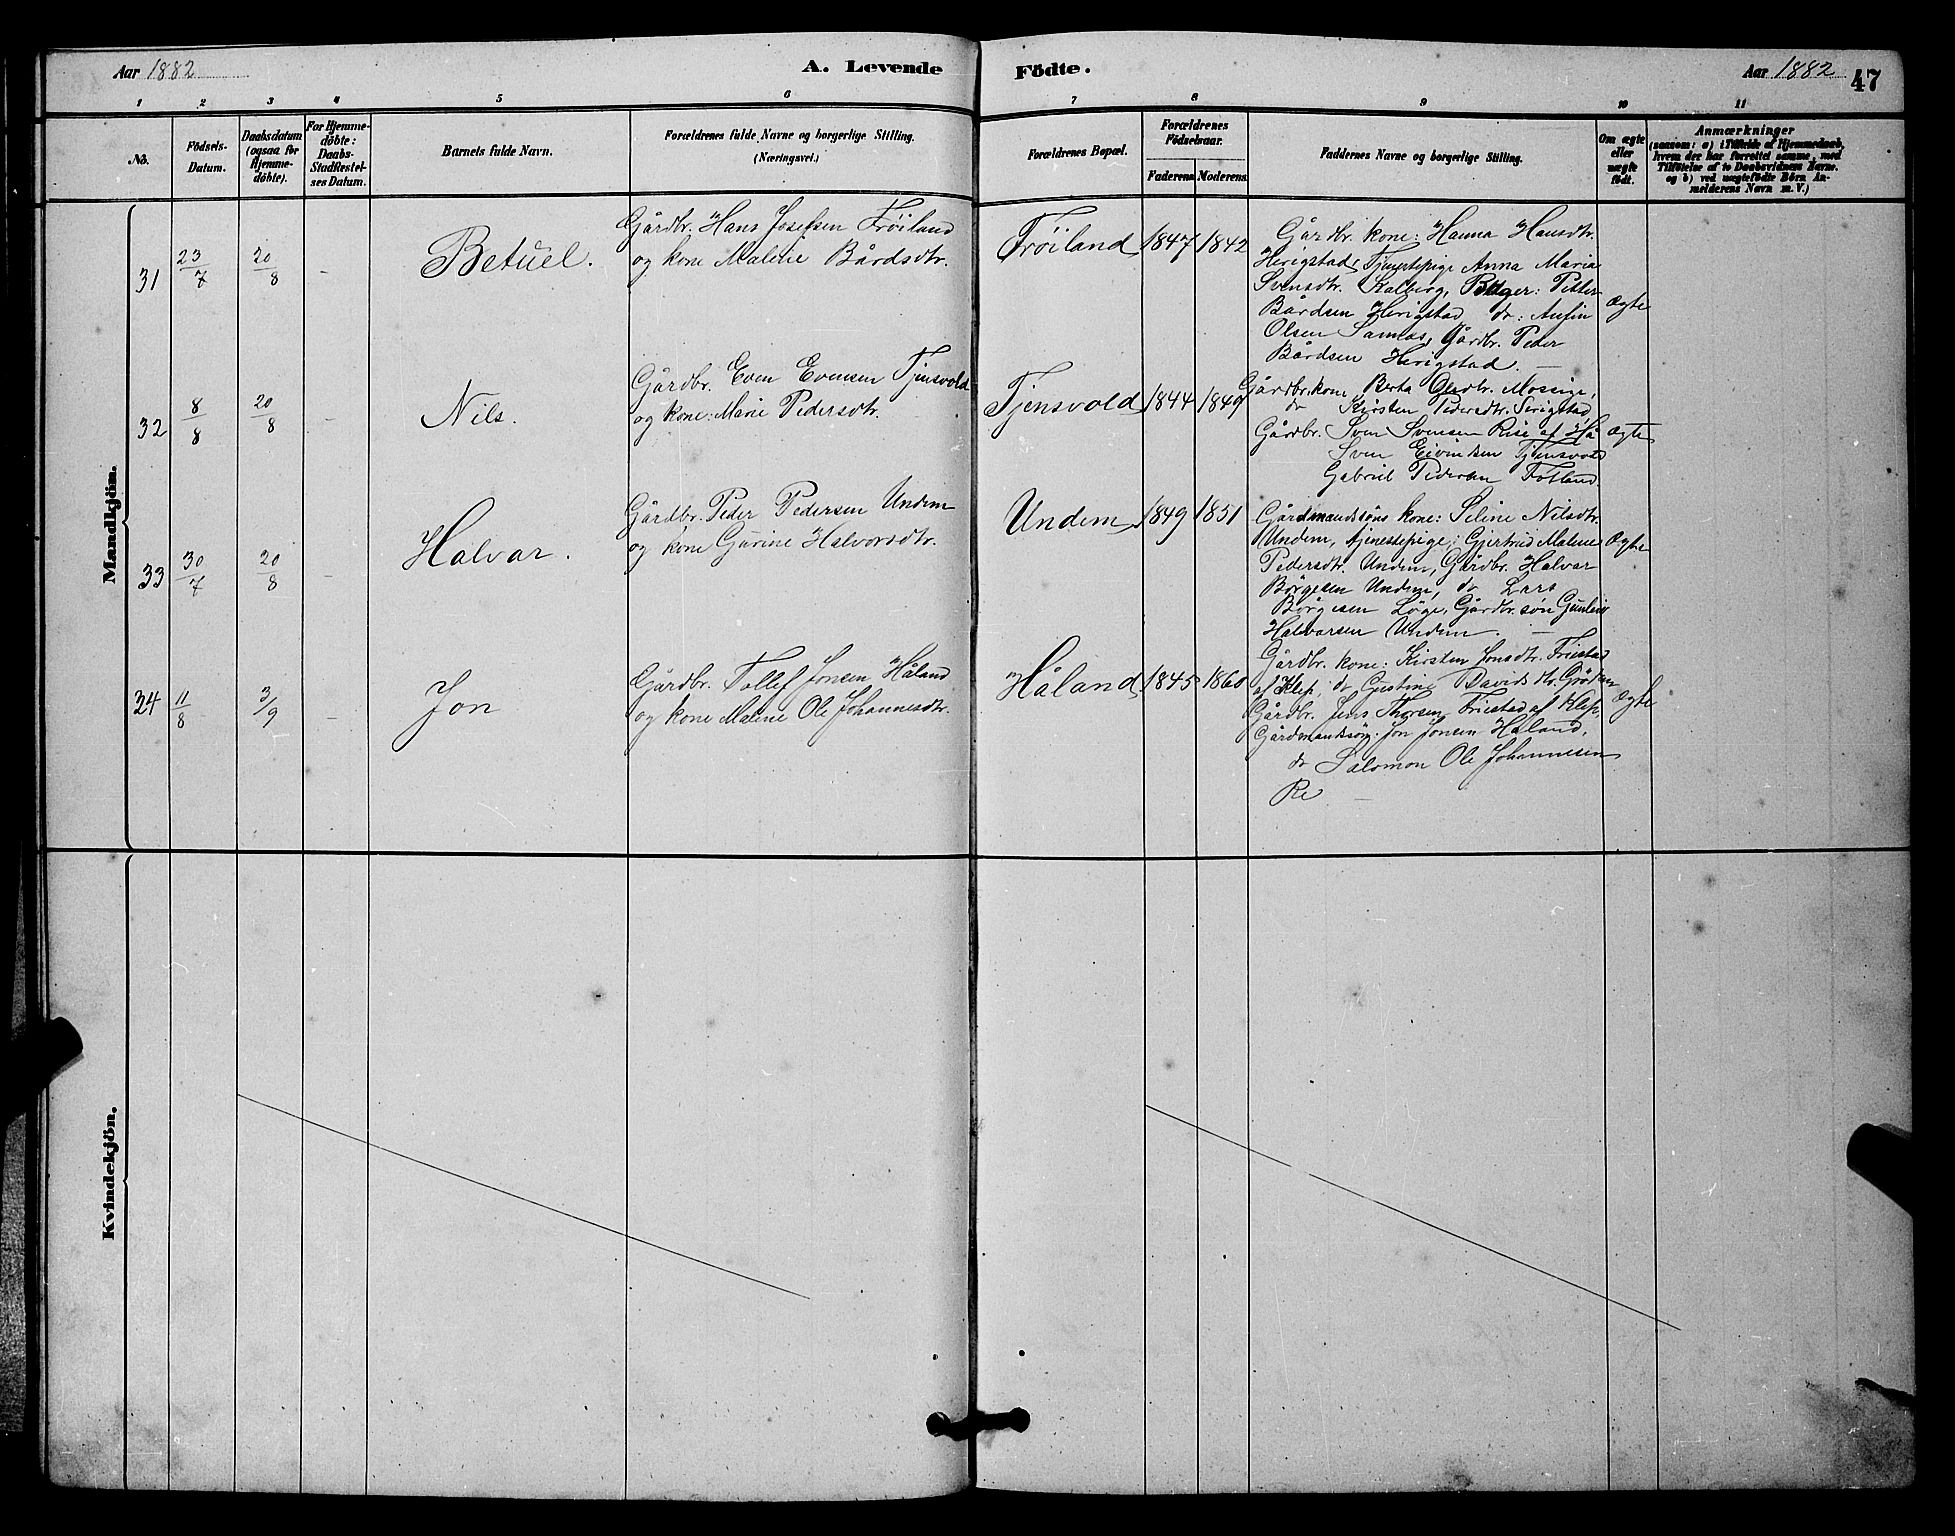 Aar 1882
A. Levende
Födte.
Aar 1882
47
1 2 3 4 5 6 7 8 9 10 11
No.
Födsels-
Datum.
Daabsdatum
(ogsaa for
Hjemme-
döbte).
For Hjemme-
döbte:
Daabs-
Stadfæstel-
ses Datum.
Barnets fulde Navn.
Forældrenes fulde Navne og borgerlige Stilling.
(Næringsvei.)
Forældrenes Bopæl.
Forældrenes
Födselsaar.
Faderens
Moderens
Faddernes Navne og borgerlige Stilling.
Om ægte
eller
uægte
födt.
Anmærkninger
(saasom: a) i Tilfælde af Hjemmedaab,
hvem der har forrettet samme, med
Tilföielse af to Daabsvidners Navne,
og b) ved uægtefödte Börn An-
melderens Navn m. V.)
Mandkjön.
31
23/7
20/8
-
Betuel.
Gårdbr. Hans Josefsen Fröiland
og kone Malene Bårdsdtr.
Fröiland
1847
1842
Gårdbr. kone: Hanna Hansdtr.
Herigstad, Tjenestepige Anna Maria
Svensdtr. Kalberg, : Petter
Bårdsen Herigstad do:
Olsen Gårdbr. Peder
Bårdsen Herigstad. —
Ægte
32
8/8
20/8
-
Nils.
Gårdbr. Even Evensen Tjensvold
og kone: Marie Pedersdtr.
Tjensvold
1844
1849
Gårdbr. kone Berta Mossige,
do Kirsten Pedersdtr. Serigstad,
Gårdbr. Sven Svensen Rise af Hå
Sven Eivindsen Tjensvold
Gabriel Pedersen Fotland
Ægte
33
30/7
20/8
-
Halvar.
Gårdbr. Peder Pedersen Undem
og kone Gurine Halvorsdtr.
Undem
1849
1851
Gårdmandssöns kone: Seline Nilsdtr.
Undem, tjenestepige: Gjertrud Malene
Pedersdtr. Undem, Gårdbr. Halvar
Börgesen Undem, do Lars
Börgesen Löge, Gårdbr. sön Gunleiv
Halvarsen Undem. —
Ægte
34
11/8
3/9
-
Jon
Gårdbr. Tollef Jonsen Håland
og kone Maline Ole Johannesdtr.
Håland
1845
1860
Gårdbr. kone: Kirsten Jonsdtr. Friestad
af Klep, do Gustine Davidsdtr.
Gårdbr. Jens Thorsen Friestad af Klep,
Gårdmandssön: Jon Jonsen Håland,
do Salomon Ole Johannesen
Re —
Ægte
Kvindekjön.